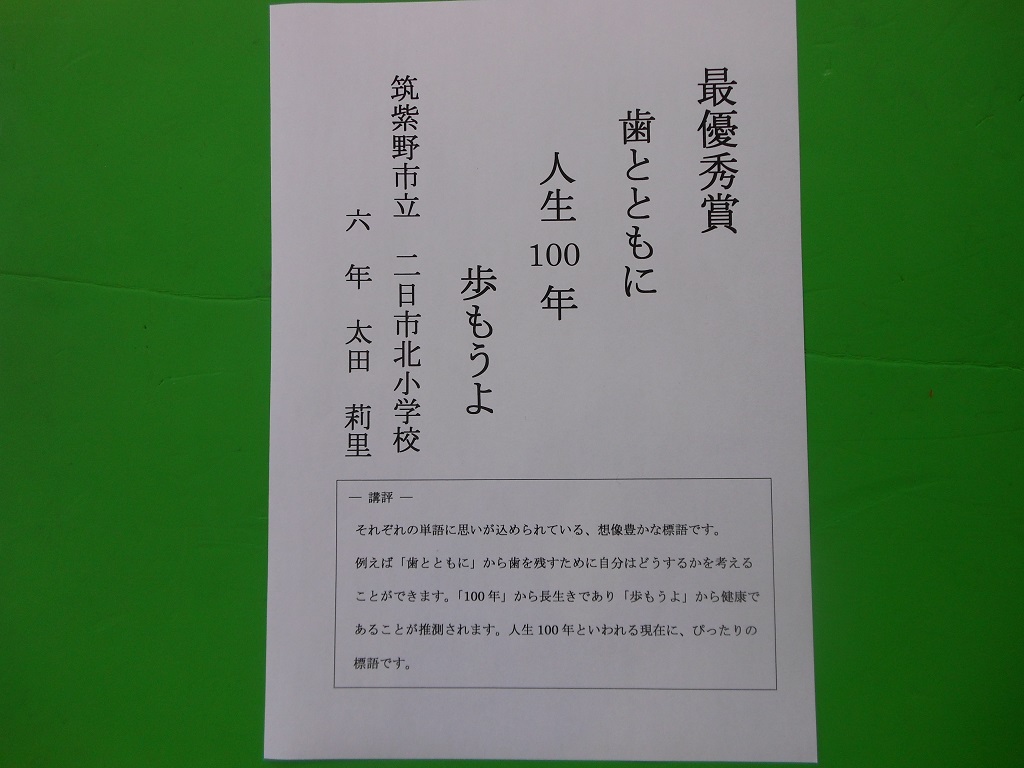 最優秀賞
歯とともに
人生100年
歩もうよ
筑紫野市立 二日市北小学校
六 年 太田 莉里
― 講評 ―
それぞれの単語に思いが込められている、想像豊かな標語です。
例えば「歯とともに」から歯を残すために自分はどうするかを考える
ことができます。「100年」から長生きであり「歩もうよ」から健康で
あることが推測されます。人生100年といわれる現在に、ぴったりの
標語です。